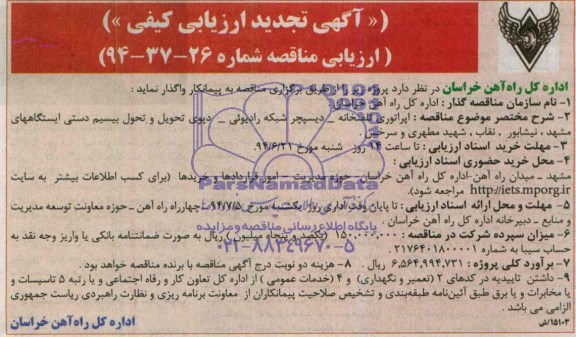 (« آگهی تجدید ارزیابی کیفی »)
( ارزیابی مناقصه شماره ۲۶-۳۷-۹۴)
اداره کل راه‌آهن خراسان در نظر دارد پروژه زیر را از طریق برگزاری مناقصه به پیمانکار واگذار نماید :
۱- نام سازمان مناقصه گذار : اداره کل راه آهن خراسان.
۲- شرح مختصر موضوع مناقصه : اپراتوری تلفنخانه _ دیسپچر شبکه رادیوئی _ دیوی تحویل و تحول بیسیم دستی ایستگاههای
مشهد، نیشابور ، نقاب , شهید مطهری و سرخس .
۳- مهلت خرید اسناد ارزیابی : تا ساعت ۱۴ روز شنبه مورخ ۹۴/۶/۲۱.
۴- محل خرید حضوری اسناد ارزیابی :
مشهد _ میدان راه آهن-اداره کل راه آهن خراسان _ حوزه مدیریت _ امور قراردادها و خریدها (برای کسب اطلاعات بیشتر به سایت
http://iets.mporg.ir مراجعه شود).
۵- مهلت و محل ارائه اسناد ارزیابی : تا پایان وقت اداری روز یکشنبه مورخ ۹۴/۷/۵-چهارراه راه آهن _ حوزه معاونت توسعه مدیریت
و منابع _ دبیرخانه اداره کل راه آهن خراسان .
۶- میزان سپرده شرکت در مناقصه : ۱۵۰،۰۰۰،۰۰۰ (یکصد و پنجاه میلیون) ریال به صورت ضمانتنامه بانکی یا واریز وجه نقد به
حساب سیبا به شماره ۲۱۷۶۴۰۱۸۰۰۰۰۱
۷- برآورد کلی پروژه : ۶,۵۶۴,۹۹۴,۷۳۱ ریال . ۸- هزینه دو نوبت درج آگهی مناقصه با برنده مناقصه خواهد بود .
۹- داشتن تاییدیه در کدهای ۳ (تعمیر و نگهداری) و ۴ (خدمات عمومی ) از اداره کل تعاون کار و رفاه اجتماعی و یا رتبه ۵ تاسیسات و
یا مخابرات و یا برق طبق آئین‌نامه طبقه‌بندی و تشخیص صلاحیت پیمانکاران از معاونت برنامه ریزی و نظارت راهبردی ریاست جمهوری
الزامی می باشد .
۱۵۱۰۳/ش
اداره کل راه‌آهن خراسان
ParsNamadData
پایگاه اطلاع رسانی مناقصه و مزایده
۰۲۱-۸۸۳۴۹۶۷۰-۵